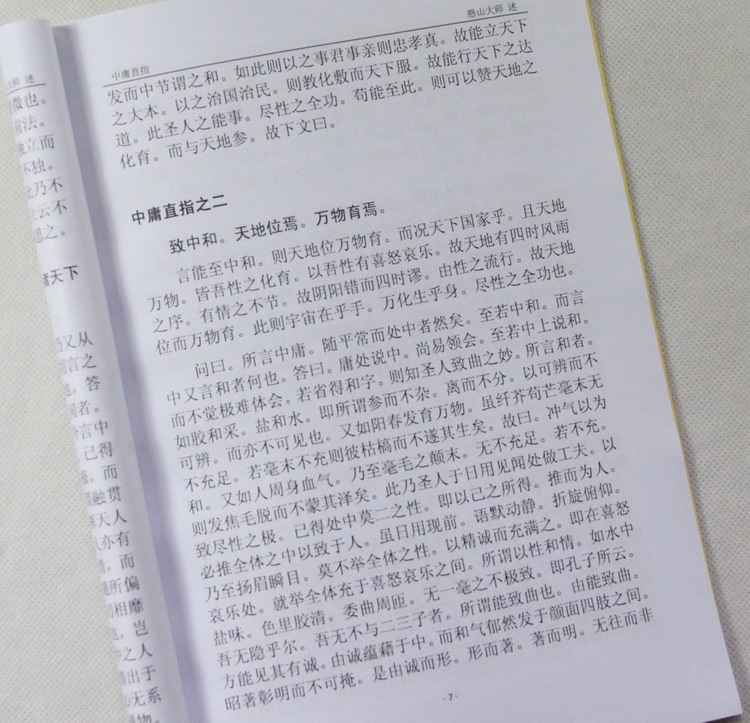 大师 述
中庸直指
憨山大师 述
发而中节谓之和。如此则以之事君事亲则忠孝真。故能立天下
之大本。以之治国治民。则教化敷而天下服。故能行天下之达
道。此圣人之能事。尽性之全功。苟能至此。则可以赞天地之
化育。而与天地参。故下文曰。
中庸直指之二
致中和。天地位焉。万物育焉。
言能至中和。则天地位万物育。而况天下国家乎。且天地
万物。皆吾性之化育。以吾性有喜怒哀乐。故天地有四时风雨
之序。有情之不节。故阴阳错而四时谬。由性之流行。故天地
位而万物育。此则宇宙在乎手。万化生乎身。尽性之全功也。
问曰。所言中庸。随平常而处中者然矣。至若中和。而言
中又言和者何也。答曰。庸处说中。尚易领会。至若中上说和。
而不觉极难体会。若省得和字。则知圣人致曲之妙。所言和者。
如胶和采。盐和水。即所谓参而不杂。离而不分。以可辨而不
可辨。而亦不可见也。又如阳春发育万物。虽纤芥荀芒毫末无
不充足。若毫末不充则彼枯槁而不遂其生矣。故曰。冲气以为
和。又如人周身血气。乃至毫毛之颠末。无不充足。若不充。
则发焦毛脱而不蒙其泽矣。此乃圣人于日用见闻处做工夫。以
致尽性之极。已得处中莫二之性。即以己之所得。推而为人。
必推全体之中以致于人。虽日用现前。语默动静。折旋俯仰。
乃至扬眉瞬目。莫不举全体之性。以精诚而充满之。即在喜怒
哀乐处。就举全体充于喜怒哀乐之间。所谓以性和情。如水中
盐味。色里胶清。委曲周匝。无一毫之不极致。即孔子所云。
吾无隐乎尔。吾无不与二三子者。所谓能致曲也。由能致曲。
方能见其有诚。由诚蕴藉于中。而和气郁然发于颜面四肢之间。
昭著彰明而不可掩。是由诚而形。形而著。著而明。无往而非
·7·